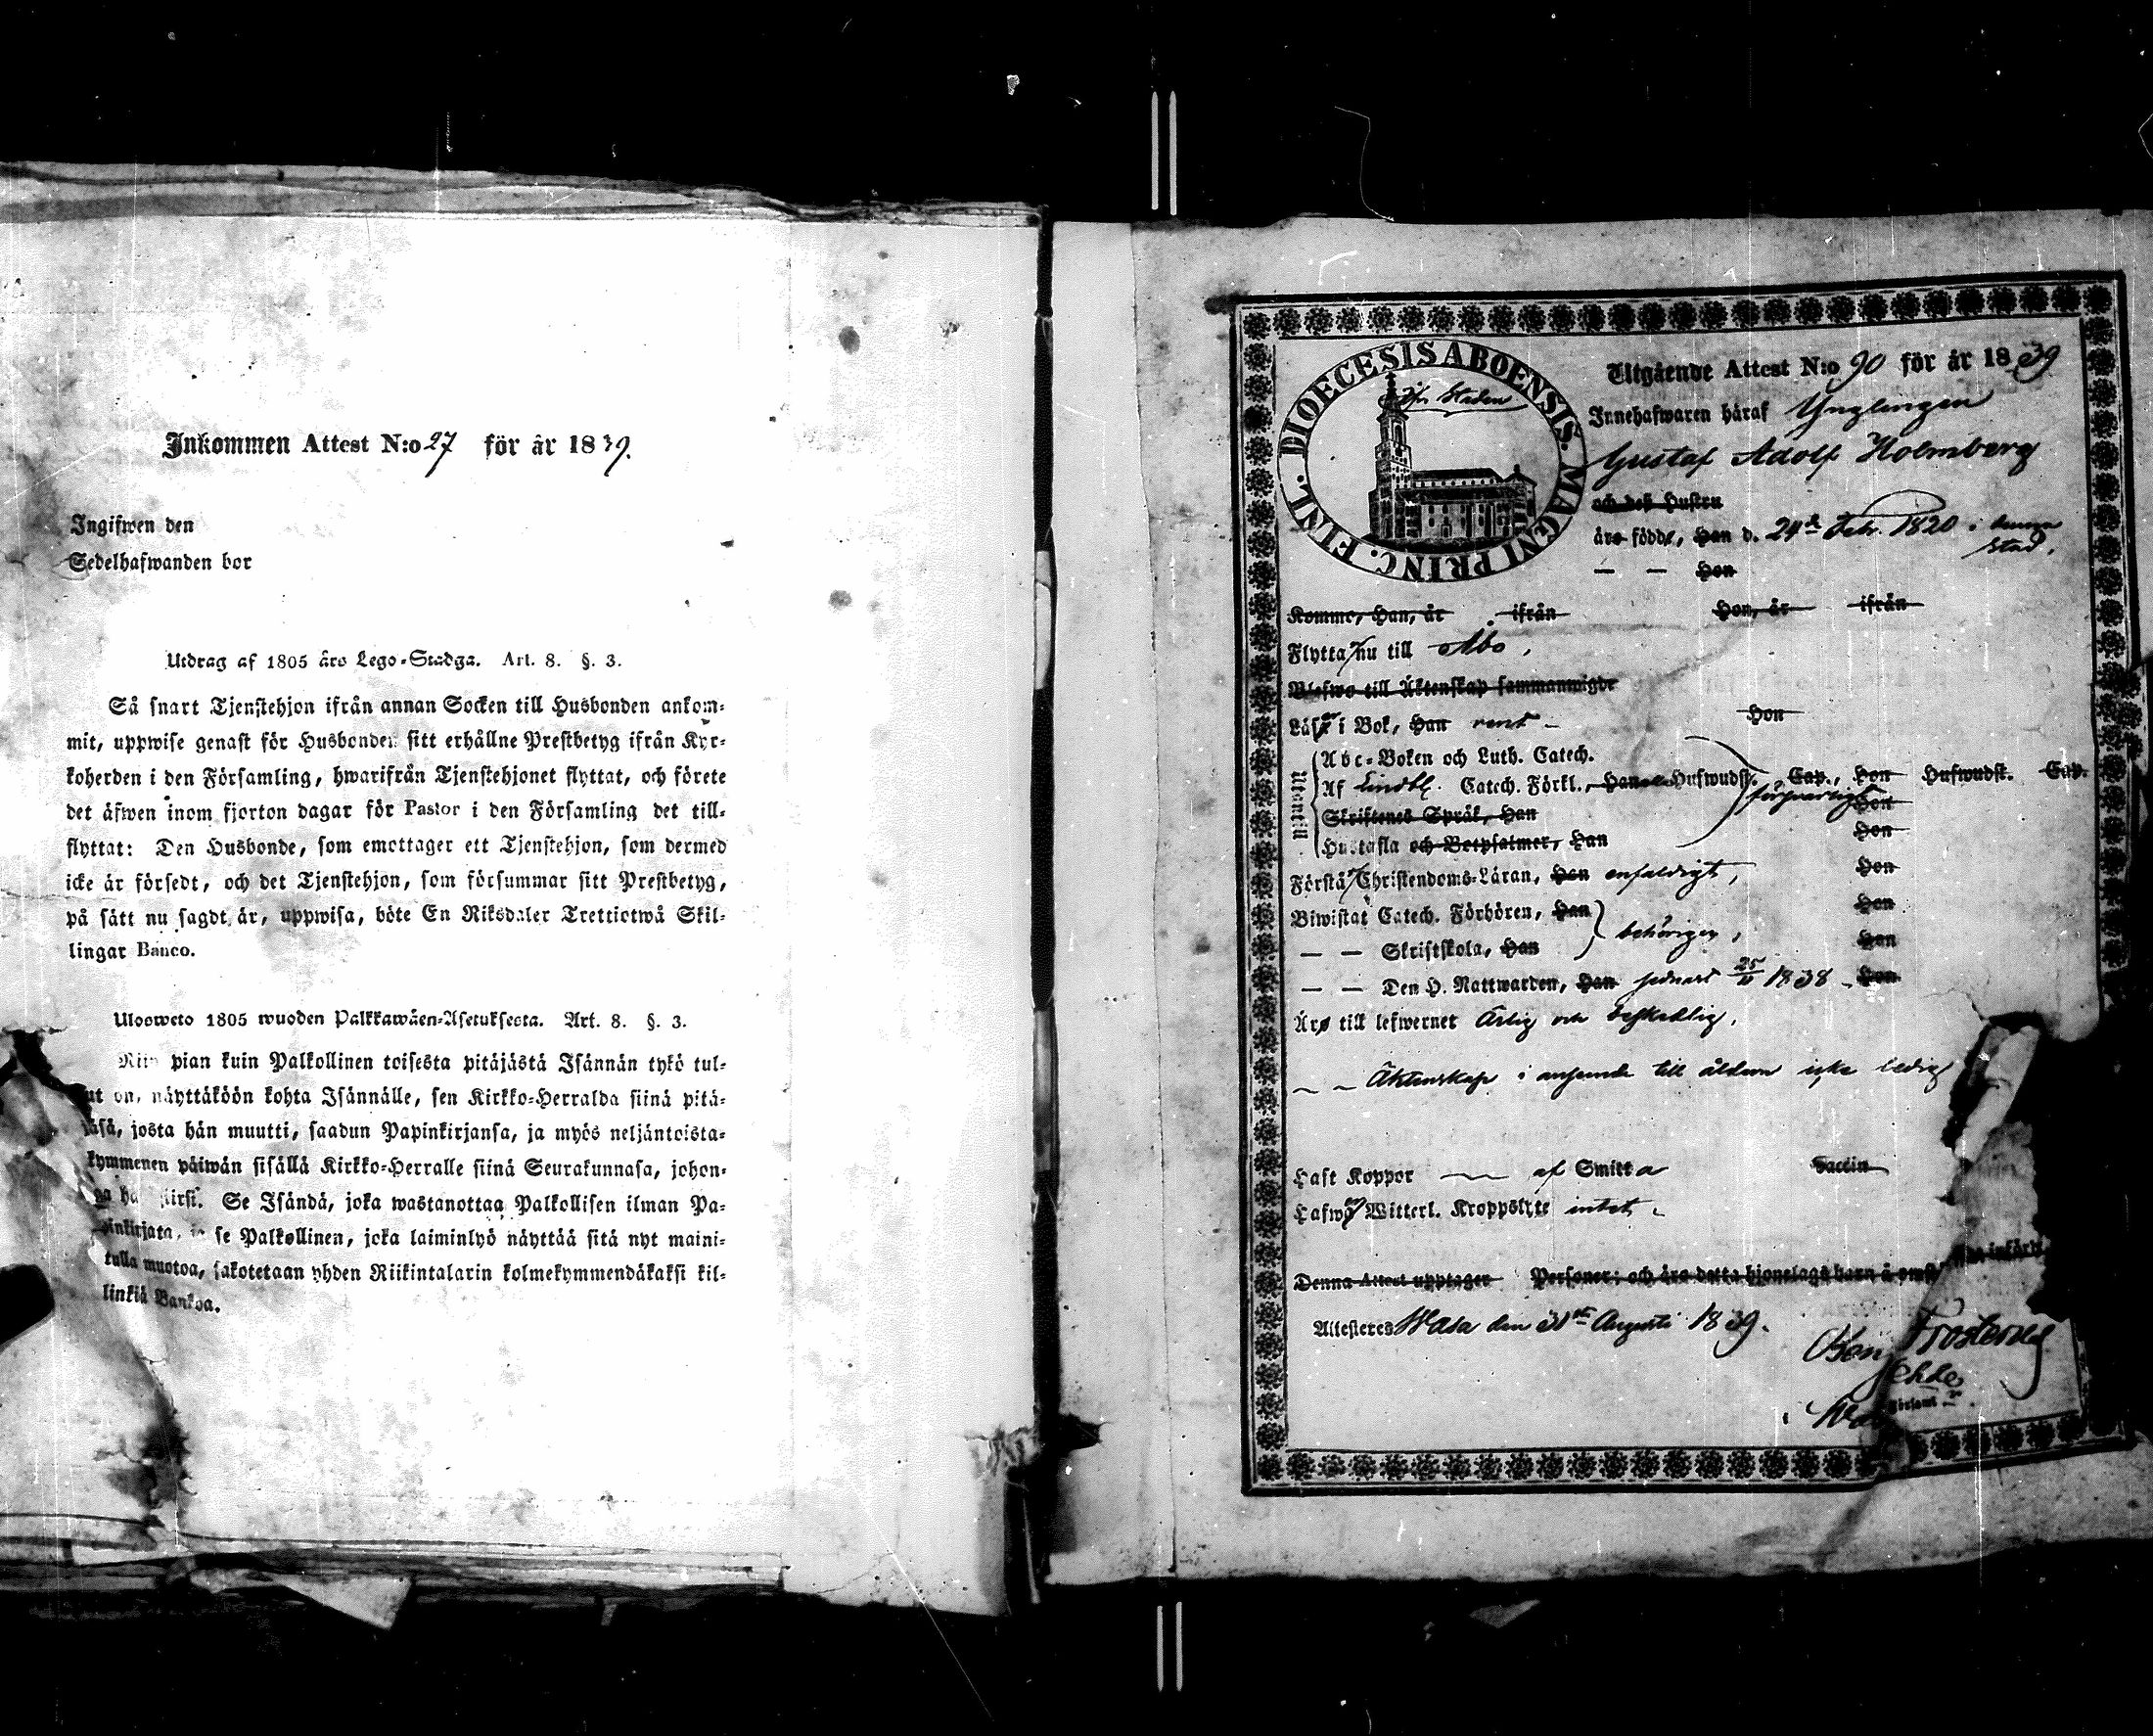 Inkommen Attest N:o 27 för år 1839.
Ingifwen den
Sedelhafwanden bor
Utdrag af 1805 års Lego-Stadga. Art. 8. §. 3.
Så snart Tjenstehjon ifrån annan Socken till Husbonden ankom-
mit, uppwise genast för Husbonden sitt erhållne Prestbetyg ifrån Kyr-
koherden i den Församling, hwarifrån Tjenstehjonet flyttat, och förete
det äfwen inom fjorton dagar för Pastor i den Församling det till-
flyttat: Den Husbonde, som emottager ett Tjenstehjon, som dermed
icke är försedt, och det Tjenstehjon, som försummar sitt Prestbetyg,
på sätt nu sagdt är, uppwisa, böte En Riksdaler Trettiotwå Skil-
lingar Banco.
Ulosweto 1805 wuoden Palkkawäen-Asetuksesta. Art. 8. §. 3.
Niin pian kuin Palkollinen toisesta pitäjästä Isännän tykö tul-
ut on, näyttäköön kohta Isännälle, sen Kirkko-Herralda siinä pitä-
jäsä, josta hän muutti, saadun Papinkirjansa, ja myös neljäntoista-
kymmenen päiwän sisällä Kirkko-Herralle siinä Seurakunnasa, johon-
ga hän siirsi. Se Isändä, joka wastanottaa Palkollisen ilman Pa-
pinkirjata, ja se Palkollinen, joka laiminlyö näyttää sitä nyt maini-
tulla muotoa, sakotetaan yhden Riikintalarin kolmekymmendäkaksi kil-
linkiä Bankoa.
DIOECESIS ABOENSIS. MAGNI PRINC. FINL.
Staden
Utgående Attest N:o 90 för år 1839
Innehafwaren häraf Ynglingen
Gustaf Adolf Holmberg
och deß Hustru
äro födde, Han d. 24de Febr. 1820 i denna
stad.
— — Hon
Komne, Han, år ifrån Hon, år ifrån
Flytta nu till Åbo,
Blefwo till Äktenskap sammanwigde
Läser i Bok, Han rent - Hon
Utantill
Abc-Boken och Luth. Catech.
Af Lindbl. Catech. Förkl., Han Hufwudst. Cap., Hon Hufwudst. Cap.
försvarligt Hon
Skriftenes Språk, Han
Hustafla och Botpsalmer, Han Hon
Förstår Christendoms-Läran, Han enfaldigt, Hon
Biwistat Catech. Förhören, Han Hon
behörigen,
— — Skriftskola, Han Hon
— — Den H. Nattwarden, Han sednast 25/11 1838 - Hon
Äro till lefwernet Ärlig och beskedlig,
— — Äktenskap i anseende till åldern icke ledig
Haft Koppor — af Smitta Vaccin
Hafwer Witterl. Kroppslyte intet.
Denna Attest upptager Personer; och äro detta hjonelags barn å
Attesteres Wasa den 31st Augusti 1839.
Frosterus